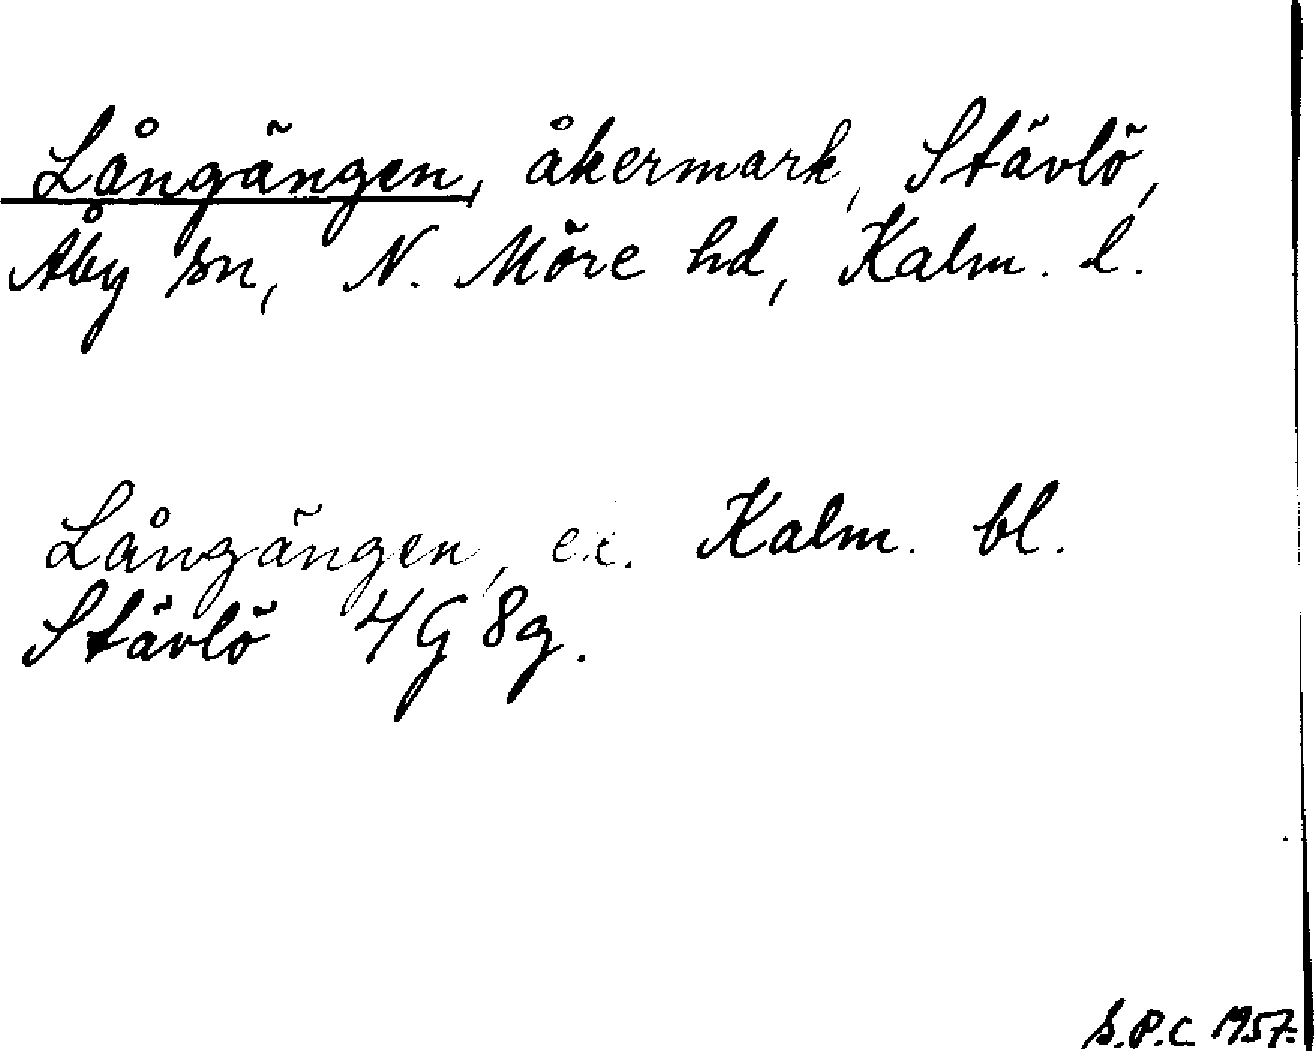 Långängen, åkermark, Stävlö,
Åby sn, N. Möre hd, Kalm. l.
Långängen, ek. Kalm. bl.
Stävlö 4G 8g.
S.P.C. 1957.